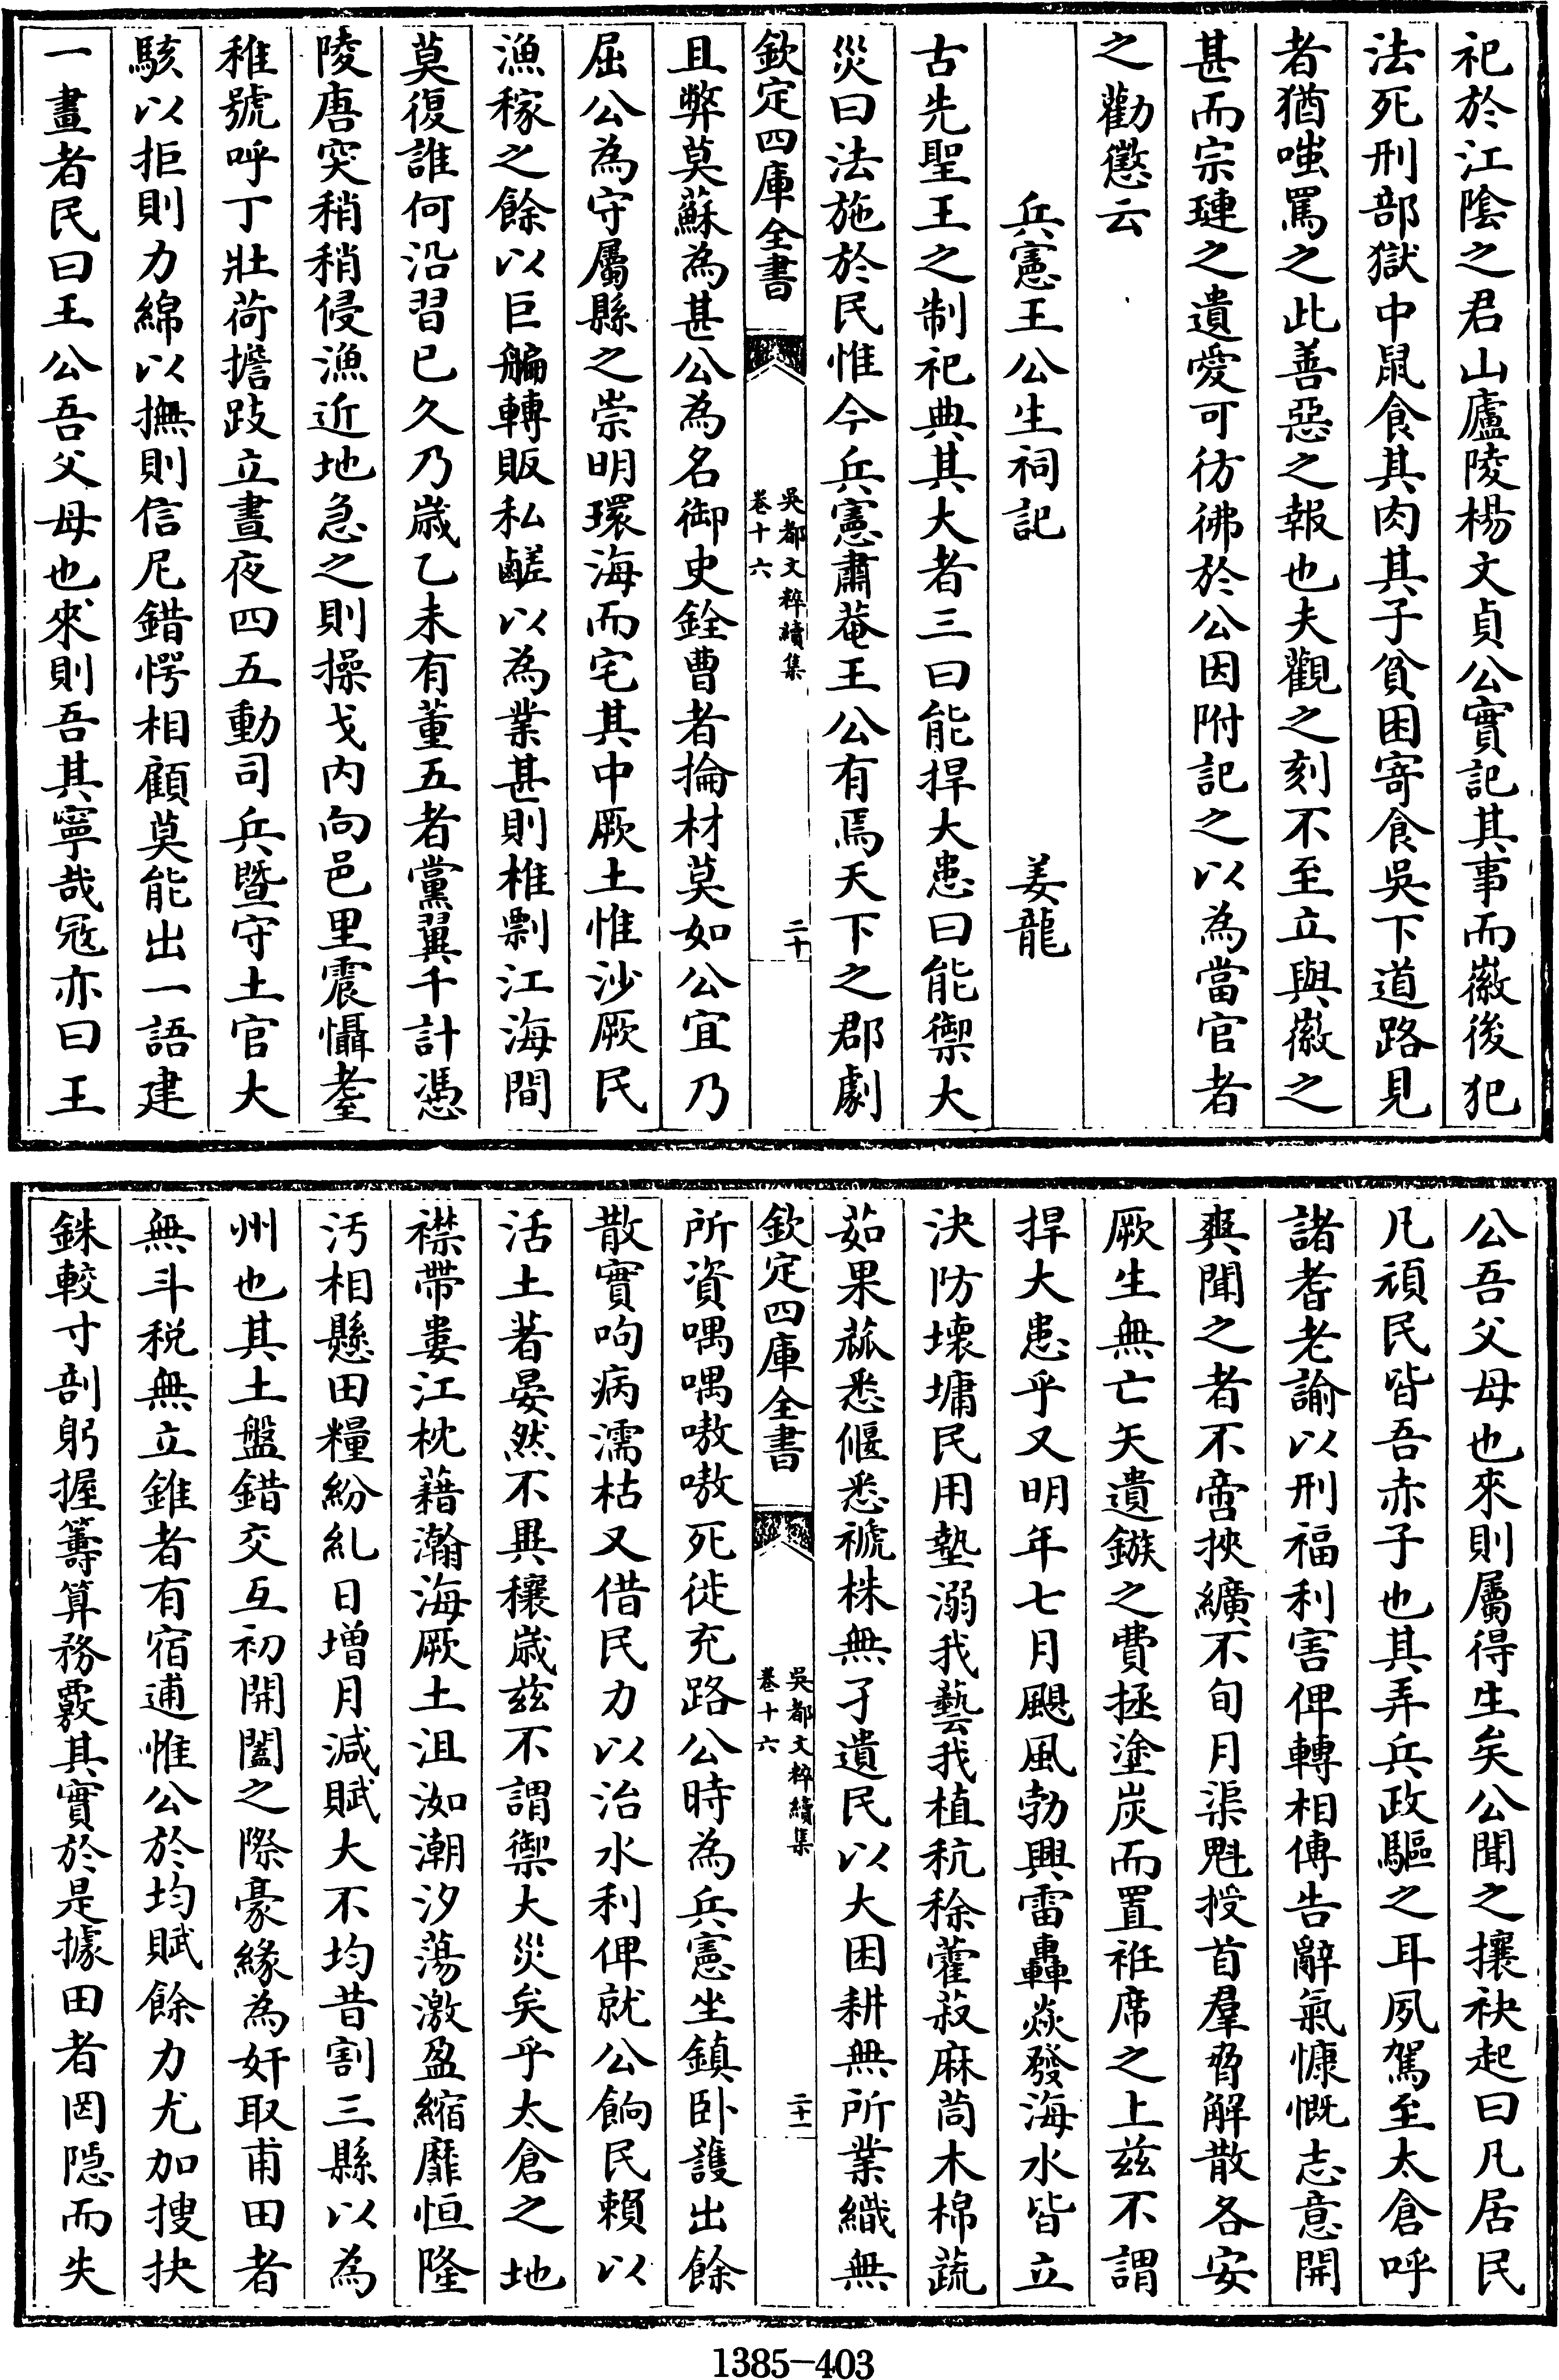 祀於江陰之君山廬陵楊文貞公實記其事而徽後犯
法死刑部獄中鼠食其肉其子貧困寄食吳下道路見
者猶嗤罵之此善惡之報也夫觀之刻不至立與徽之
甚而宗璉之遺愛可彷彿於公因附記之以為當官者
之勸懲云
兵憲王公生祠記　姜龍
古先聖王之制祀典其大者三曰能捍大患曰能禦大
災曰法施於民惟今兵憲肅菴王公有焉天下之郡劇
欽定四庫全書
吳都文粹續集
卷十六
二十
且弊莫蘇為甚公為名御史銓曹者掄材莫如公宜乃
屈公為守屬縣之崇明環海而宅其中厥土惟沙厥民
漁稼之餘以巨艑轉販私鹺以為業甚則椎剽江海間
莫復誰何沿習已久乃歲乙未有董五者黨翼千計憑
陵唐突稍稍侵漁近地急之則操戈內向邑里震懾耋
稚號呼丁壯荷擔跂立晝夜四五動司兵暨守土官大
駭以拒則力綿以撫則信尼錯愕相顧莫能出一語建
一畫者民曰王公吾父母也來則吾其寧哉寇亦曰王
公吾父母也來則屬得生矣公聞之攘袂起曰凡居民
凡頑民皆吾赤子也其弄兵政驅之耳夙駕至太倉呼
諸耆老諭以刑福利害俾轉相傳告辭氣慷慨志意開
爽聞之者不啻挾纊不旬月渠魁授首羣脅解散各安
厥生無亡矢遺鏃之費拯塗炭而置袵席之上茲不謂
捍大患乎又明年七月颶風勃興雷轟焱發海水皆立
決防壞墉民用墊溺我藝我植秔稌藿菽麻苘木棉蔬
茹果蓏悉偃悉褫株無孑遺民以大困耕無所業織無
欽定四庫全書
吳都文粹續集
卷十六
二十一
所資喁喁嗷嗷死徙充路公時為兵憲坐鎮卧護出餘
散實呴病濡枯又借民力以治水利俾就公餉民賴以
活土著晏然不異穰歲茲不謂禦大災矣乎太倉之地
襟帶婁江枕藉瀚海厥土沮洳潮汐蕩激盈縮靡恒隆
汚相懸田糧紛糺日增月減賦大不均昔割三縣以為
州也其土盤錯交互初開闔之際豪緣為奸取甫田者
無斗稅無立錐者有宿逋惟公於均賦餘力尤加搜抉
銖較寸剖躬握籌算務覈其實於是據田者罔隱而失
1385-403